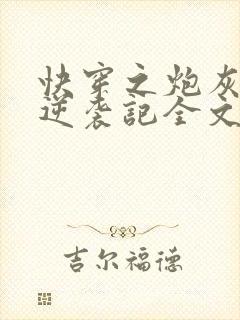 快穿之炮灰
逆袭記全文
吉尔福德